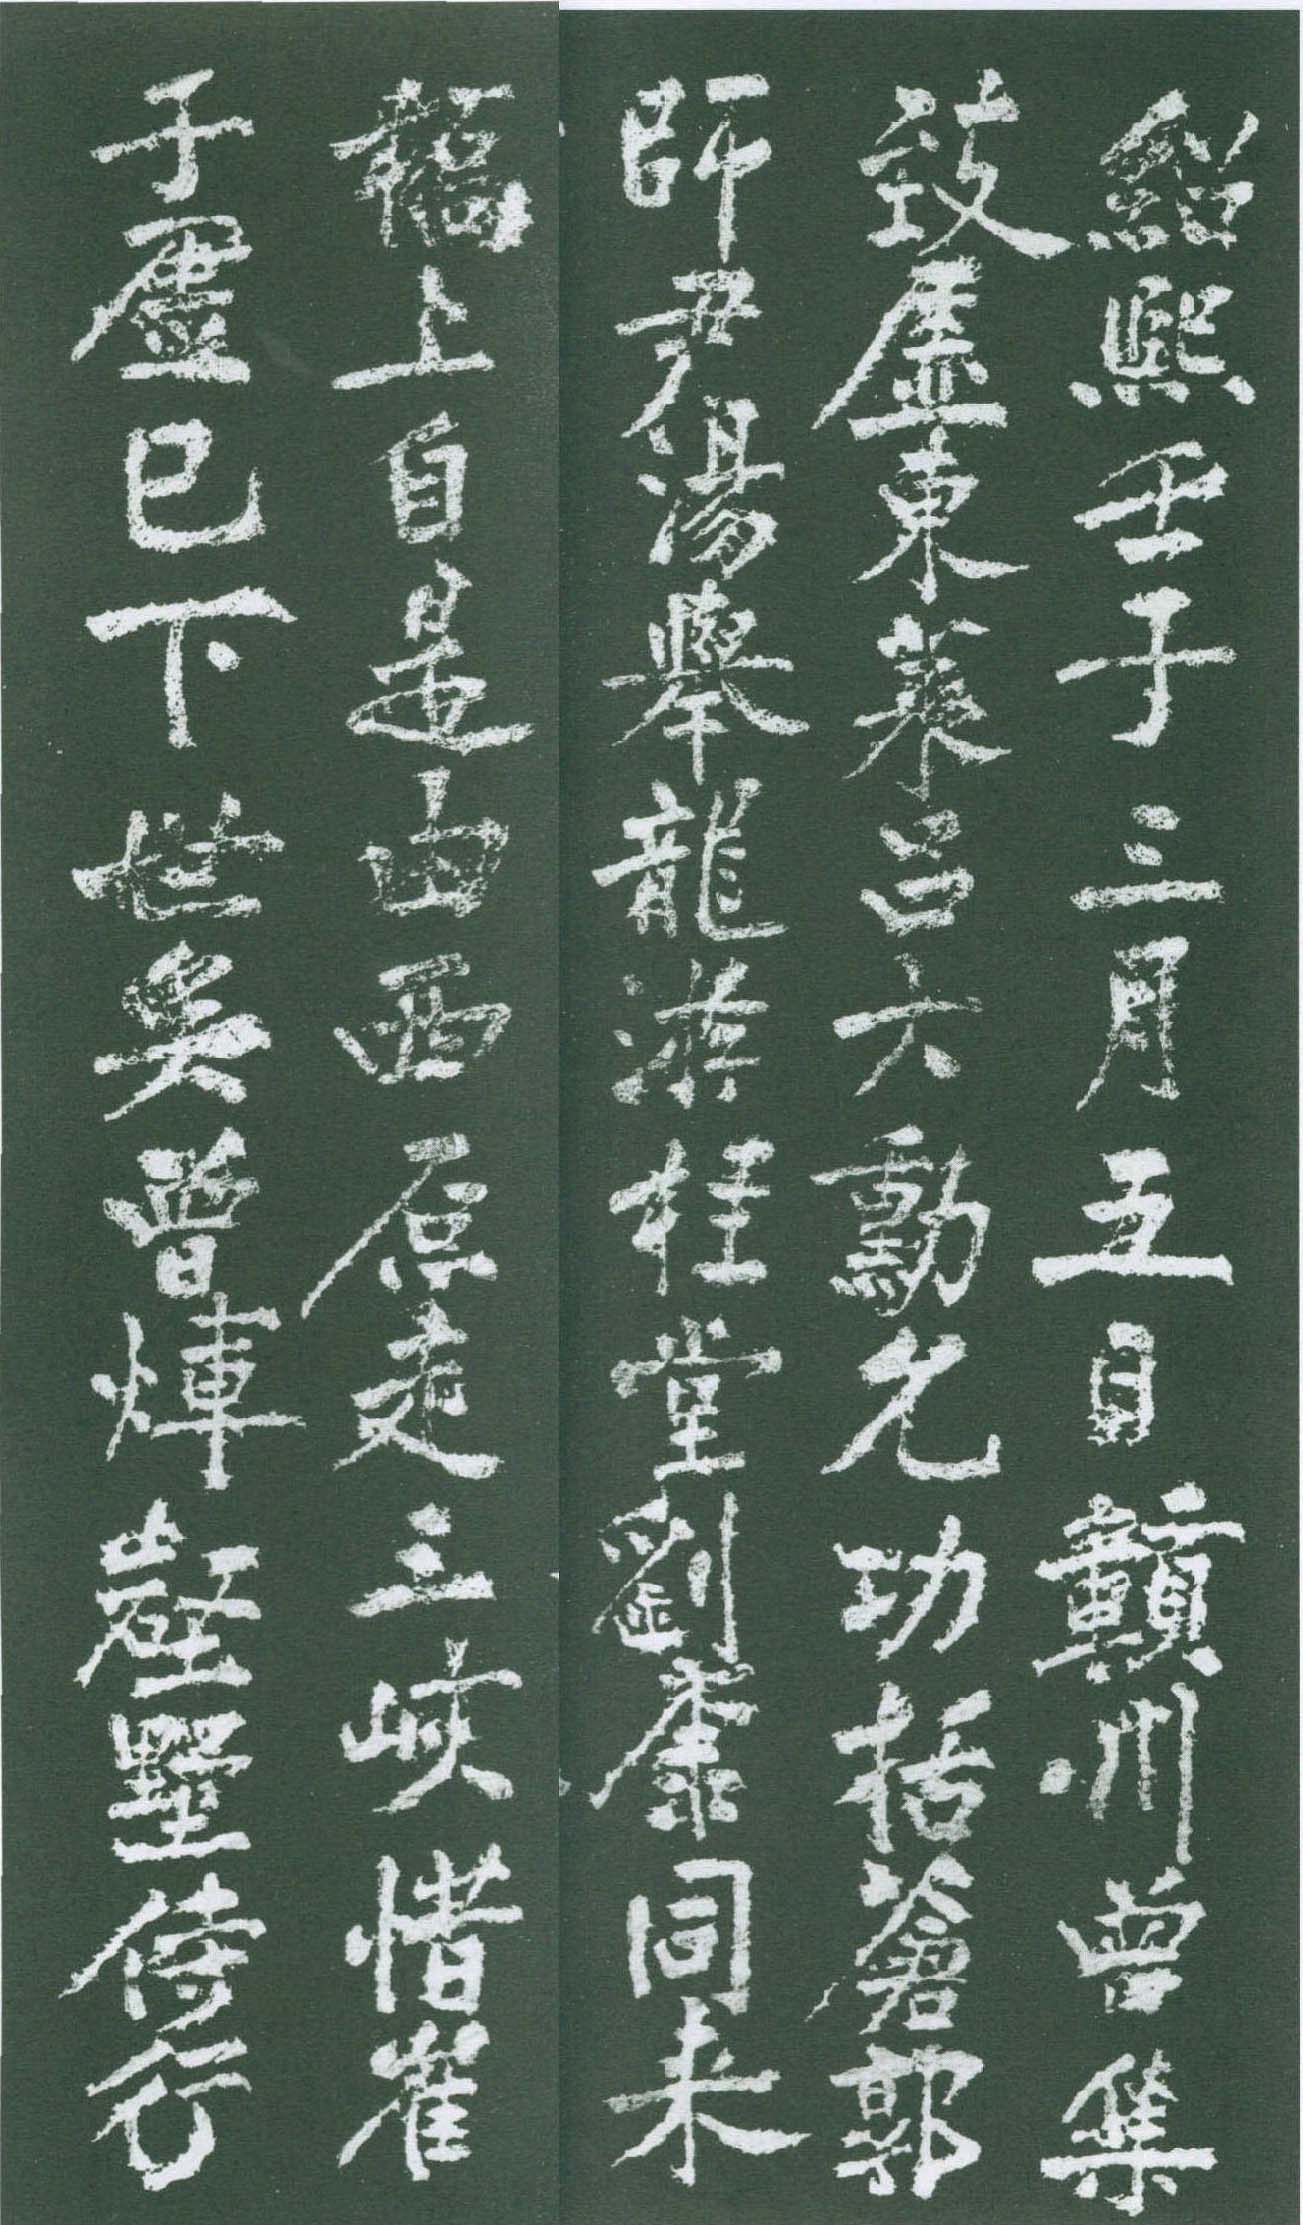 紹熙壬子三月五日贛州曾集
致虛東萊呂大勳允功括蒼郭
師尹湯舉龍游桂堂劉黍同來
上自是由西原走三峽惜崔
子虛已下世矣曾煇墅侍行